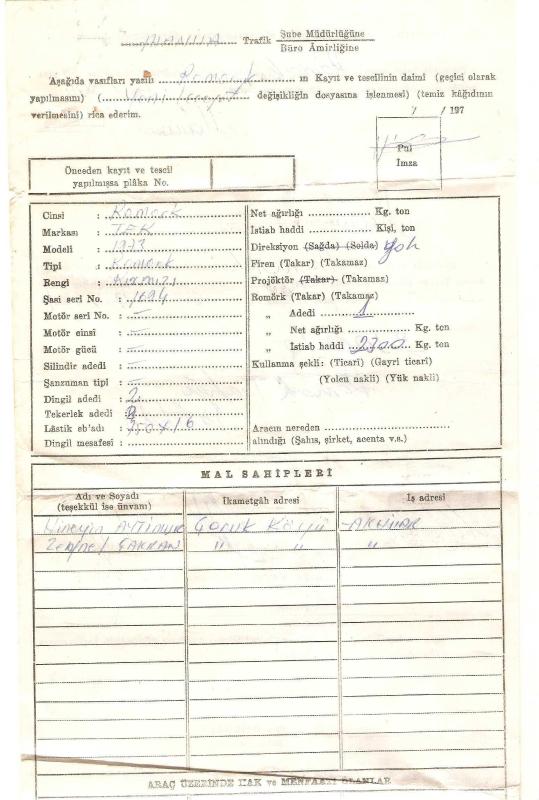 Trafik Şube Müdürlüğüne
Büro Âmirliğine
Aşağıda vasıfları yazılı Romork ın Kayıt ve tescilinin daimî (geçici olarak
yapılmasını) ( değişikliğin dosyasına işlenmesi) (temiz kâğıdının
verilmesini) rica ederim.
/ / 197
Pul
İmza
Önceden kayıt ve tescil
yapılmışsa plâka No.
Cinsi : Romork
Markası : TEK
Modeli : 1973
Tipi : Romork
Rengi : Kırmızı
Şasi seri No. : 1694
Motör seri No. : —
Motör cinsi : —
Motör gücü : —
Silindir adedi : —
Şanzuman tipi : —
Dingil adedi : 2
Tekerlek adedi :
Lâstik eb'adı : 750x16
Dingil mesafesi :
Net ağırlığı Kg. ton
İstiab haddi Kişi, ton
Direksiyon (Sağda) (Solda) yok
Firen (Takar) (Takamaz)
Projöktör (Takar) (Takamaz)
Romörk (Takar) (Takamaz)
„ Adedi 1
„ Net ağırlığı Kg. ton
„ İstiab haddi 2300 Kg. ton
Kullanma şekli: (Ticarî) (Gayri ticarî)
(Yolcu nakli) (Yük nakli)
Aracın nereden
alındığı (Şahıs, şirket, acenta v.s.)
MAL SAHİPLERİ
Adı ve Soyadı
(teşekkül ise ünvanı)
İkametgâh adresi
İş adresi
Çocuk Köyü
" "
"
ARAÇ ÜZERİNDE HAK ve MENFAATİ OLANLAR